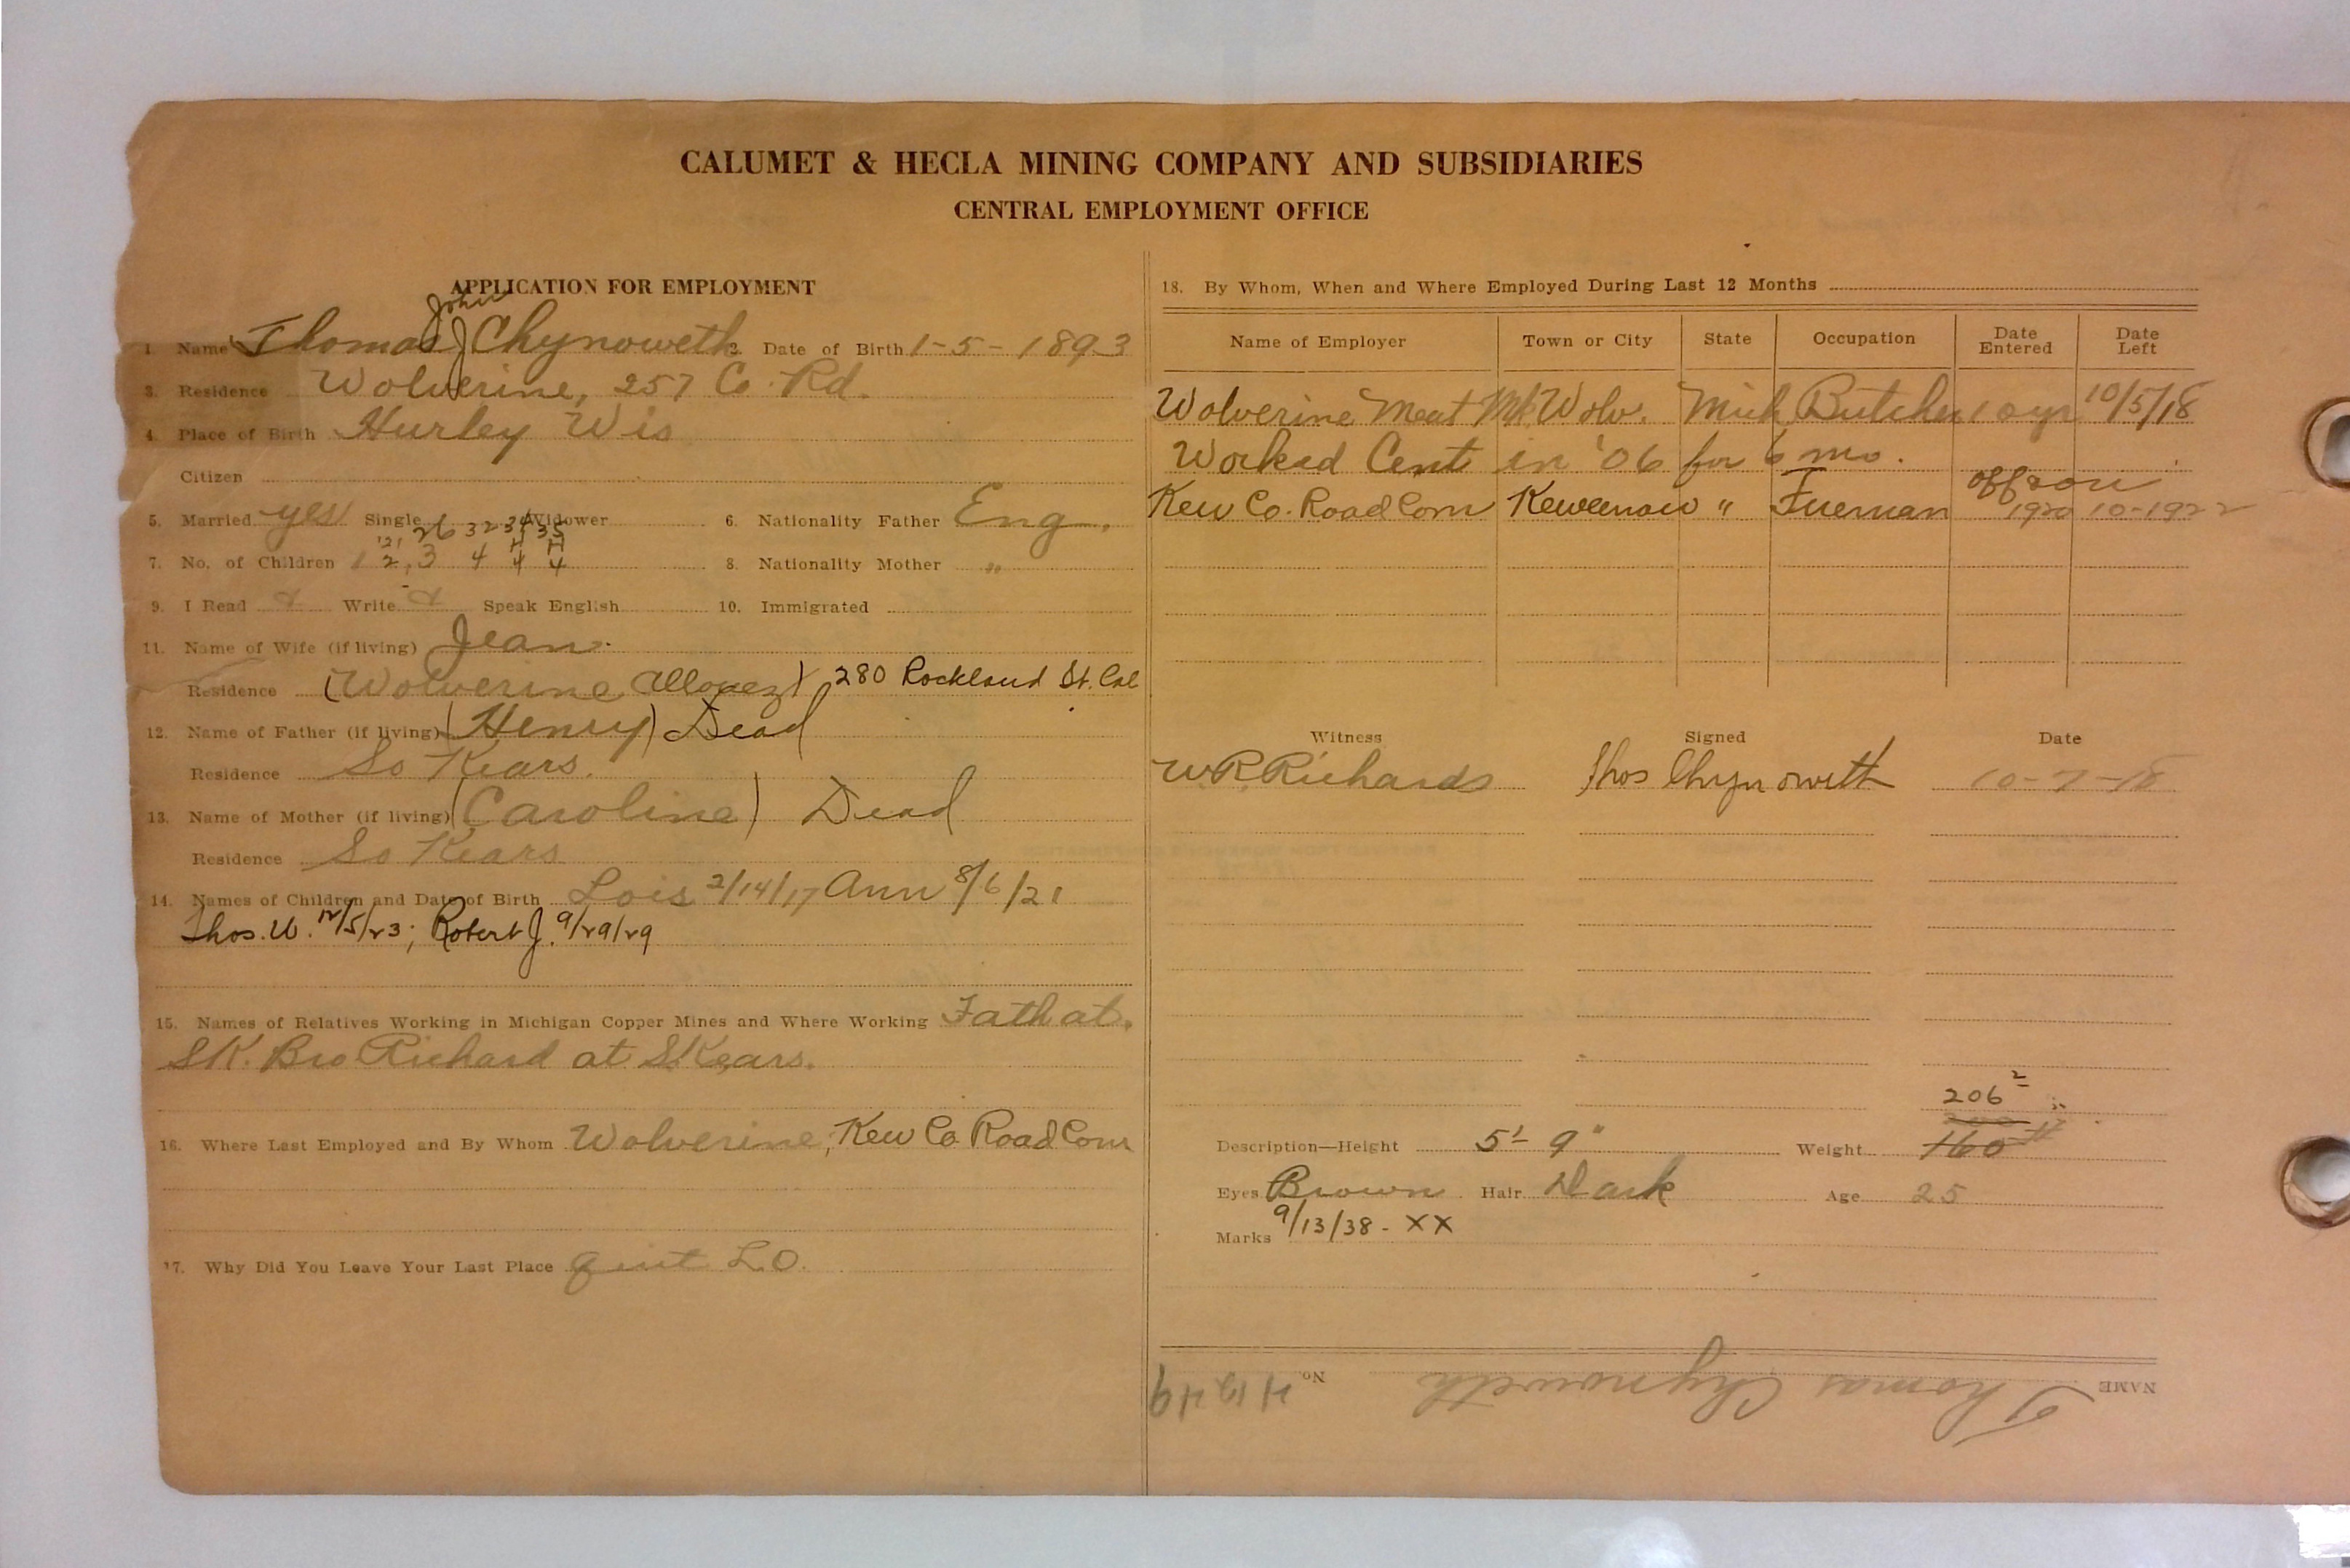 CALUMET & HECLA MINING COMPANY AND SUBSIDIARIES
CENTRAL EMPLOYMENT OFFICE
APPLICATION FOR EMPLOYMENT
John
1. Name Thomas J Chynoweth 2. Date of Birth 1-5-1893
3. Residence Wolverine, 257 Co. Rd.
4. Place of Birth Hurley Wis
Citizen
5. Married yes Single Widower 6. Nationality Father Eng.
'21 26 32 34 35
7. No. of Children 1 2, 3 4 4 4 8. Nationality Mother "
9. I Read Write Speak English 10. Immigrated
11. Name of Wife (if living) Jean.
Residence (Wolverine Allouez) 280 Rockland St. Cal
12. Name of Father (if living) (Henry) Dead
Residence So Kears.
13. Name of Mother (if living) (Caroline) Dead
Residence So Kears
14. Names of Children and Date of Birth Lois 2/14/17 Ann 8/6/21
Thos. W. 12/5/23; Robert J. 9/29/29
15. Names of Relatives Working in Michigan Copper Mines and Where Working Fath at.
SK. Bro Richard at S.Kears.
16. Where Last Employed and By Whom Wolverine; Kew Co Road Com
17. Why Did You Leave Your Last Place quit L.O.
18. By Whom, When and Where Employed During Last 12 Months
Name of Employer Town or City State Occupation Date Entered Date Left
Wolverine Meat Mk Wolv. Mich Butcher 10 yr 10/5/18
Worked Cent in '06 for 6 mo.
off & on
Kew Co. Road Com Keweenaw " Fireman 1920 10-1922
Witness Signed Date
W.R. Richards Thos Chynoweth 10-7-18
206
Description—Height 5'- 9" Weight 160
Eyes Brown Hair Dark Age 25
Marks 9/13/38 - XX
NAME Thomas Chynoweth No.